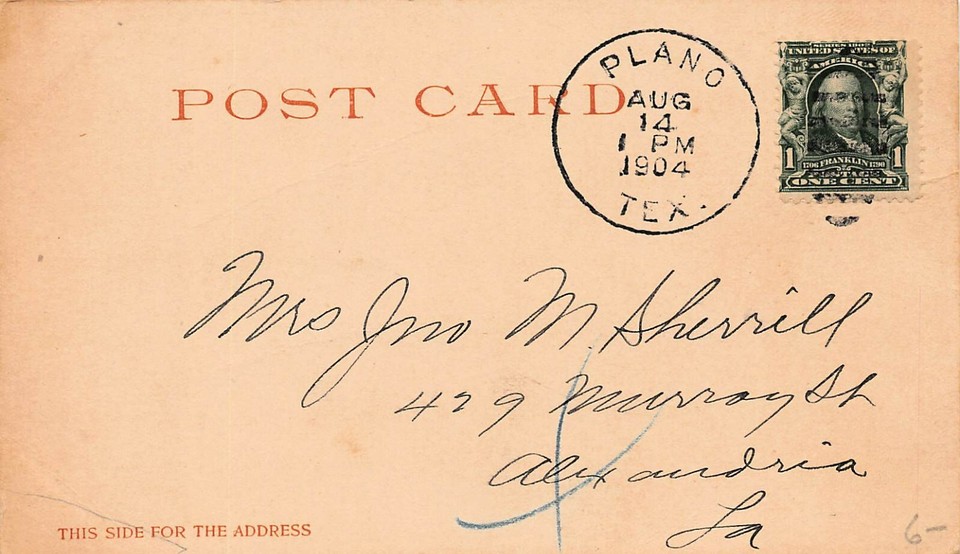 POST CARD
PLANO
AUG
14
1 PM
1904
TEX.
SERIES 1902
UNITED STATES OF
AMERICA
1 1706 FRANKLIN 1790 1
POSTAGE
ONE CENT
Mrs Jno M. Sherrill
429 Murray St
Alexandria
La
THIS SIDE FOR THE ADDRESS
6-